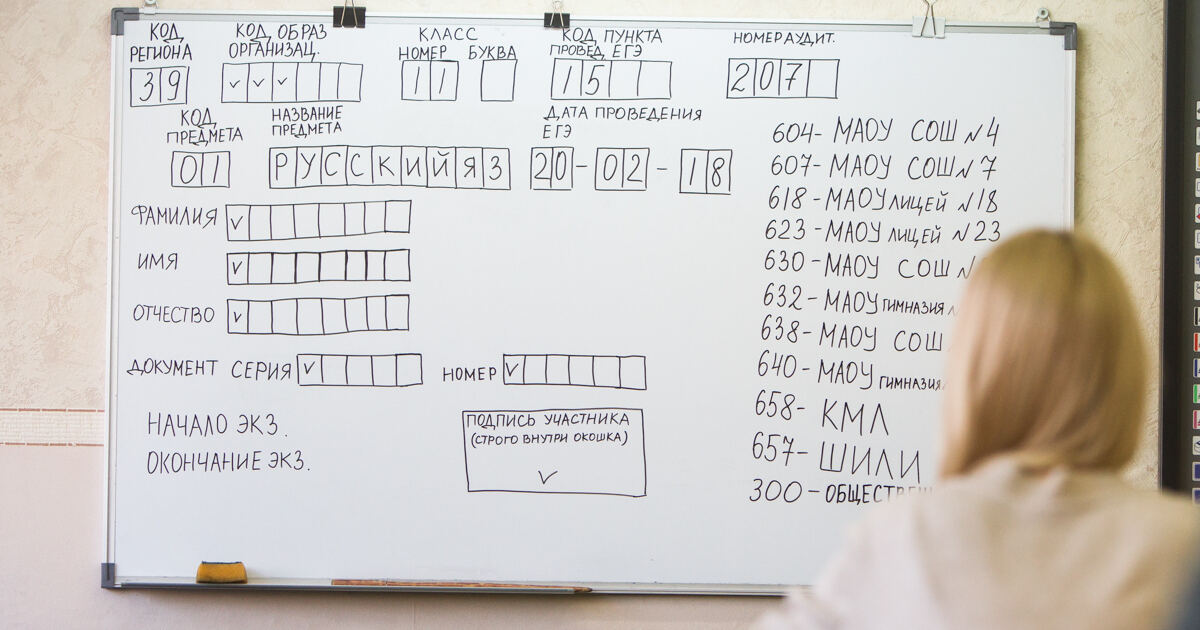 КОД РЕГИОНА
39
КОД ОБРАЗ ОРГАНИЗАЦ.
КЛАСС
НОМЕР БУКВА
11
КОД ПУНКТА
ПРОВЕД. ЕГЭ
15
НОМЕР АУДИТ.
207
КОД ПРЕДМЕТА
01
НАЗВАНИЕ ПРЕДМЕТА
РУССКИЙ ЯЗ
ДАТА ПРОВЕДЕНИЯ
ЕГЭ
20-02-18
ФАМИЛИЯ
ИМЯ
ОТЧЕСТВО
ДОКУМЕНТ СЕРИЯ
НОМЕР
НАЧАЛО ЭКЗ.
ОКОНЧАНИЕ ЭКЗ.
ПОДПИСЬ УЧАСТНИКА
(СТРОГО ВНУТРИ ОКОШКА)
604- МАОУ СОШ №4
607- МАОУ СОШ №7
618- МАОУ ЛИЦЕЙ №18
623- МАОУ ЛИЦЕЙ №23
630- МАОУ СОШ
632- МАОУ ГИМНАЗИЯ
638- МАОУ СОШ
640- МАОУ ГИМНАЗИЯ
658- КМЛ
657- ШИЛИ
300-